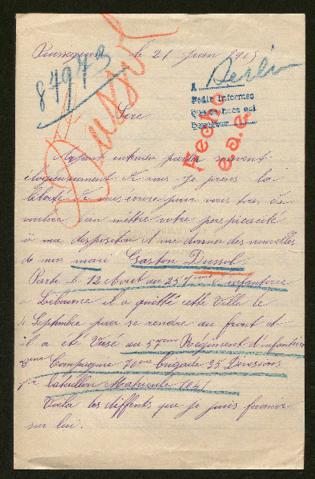 le 21 Juin 1915
87973
Dussol
Berlin
A
Prière informer
Sire
Ayant entendu parler souvent
élogieusement de vous je prends la
liberté de vous
mettre votre perspicacité
à ma disposition et me donner des nouvelles
de mon mari Gaston Dussol
Parti le 12 Août au 257ème infanterie
à Libourne il a quitté cette Ville le
Septembre pour se rendre au front et
il a été Versé au 57ème Régiment d'infanterie
Compagnie 70ème brigade 35 Divisions
bataillon Matricule
Voila les différents que je puis fournir
sur lui.